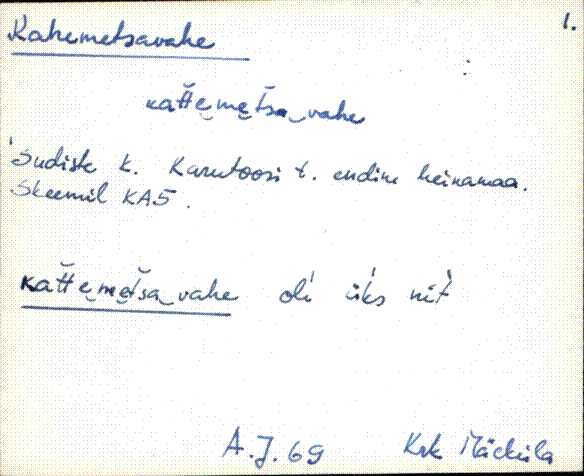 1.
Kahemetsavahe
kattemetsa vahe
Sudiste k. Karutoosi t. endine heinamaa.
Skeemil KA5.
kattemetsa vahe oli üks nit
A.J. 69 Krk Mäeküla